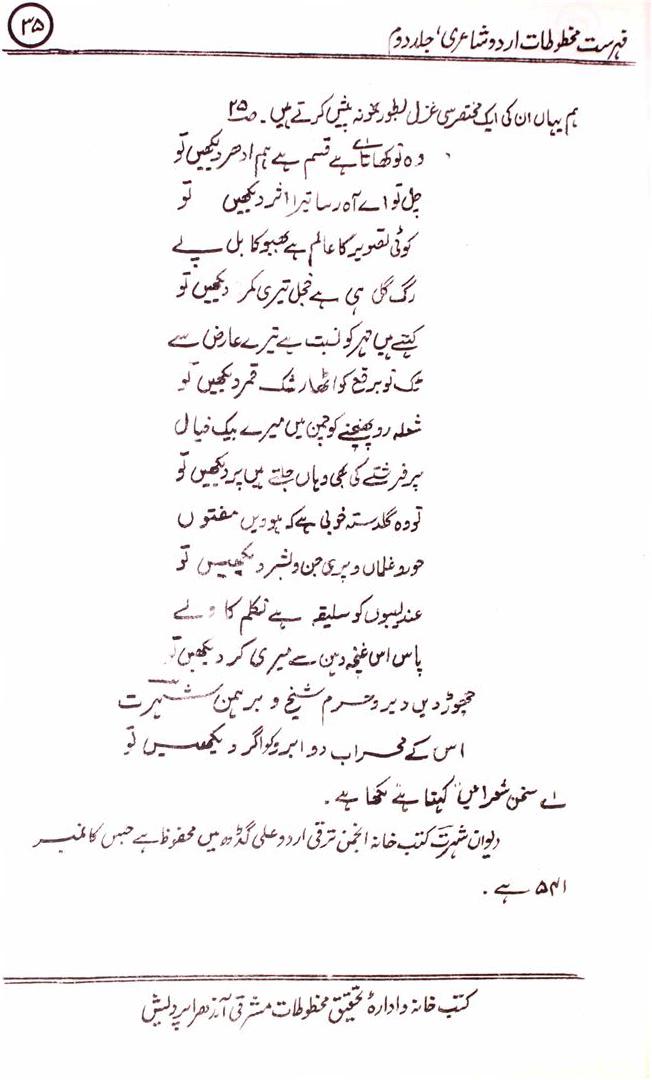 ۳۵
فہرست مخطوطات اردو شاعری، جلد دوم
ہم یہاں ان کی ایک مختصر سی غزل بطور نمونہ پیش کرتے ہیں۔ صـ ۲۵
وہ تو کھاتا لے ہے قسم ہے ہم ادھر دیکھیں تو
چل تو اے آہ رسا تیرا اثر دیکھیں تو
کوئی تصویر کا عالم ہے بھبوکا بل بے
رگ گل ہی ہے خجل تیری کمر دیکھیں تو
کہتے ہیں مہر کو نسبت ہے تیرے عارض سے
ٹک تو برقع کو اٹھا رشک قمر دیکھیں تو
شعلہ رو پھنچنے کو جن میں میرے پیک خیال
پر فرشتے کی بھی وہاں جلتے ہیں پر دیکھیں تو
تو وہ گلدستہ خوبی ہے کہ ہوویں مفتوں
حور و غلماں و پری جن و بشر دیکھیں تو
عندلیبوں کو سلیقہ ہے تکلم کا ولے
پاس اس غنچہ دہن کے میری کر دیکھیں تو
چھوڑ دیں دیر و حرم شیخ و برہمن شہرت
اس کے محراب دو ابرو کو اگر دیکھیں تو
لے سخن شعرا میں "کہتا ہے" لکھا ہے۔
دیوان شہرت کتب خانہ انجمن ترقی اردو علی گڈھ میں محفوظ ہے جس کا نمبر
۵۴۱ ہے۔
کتب خانہ و ادارۂ تحقیق مخطوطات مشرقی آندھرا پردیش